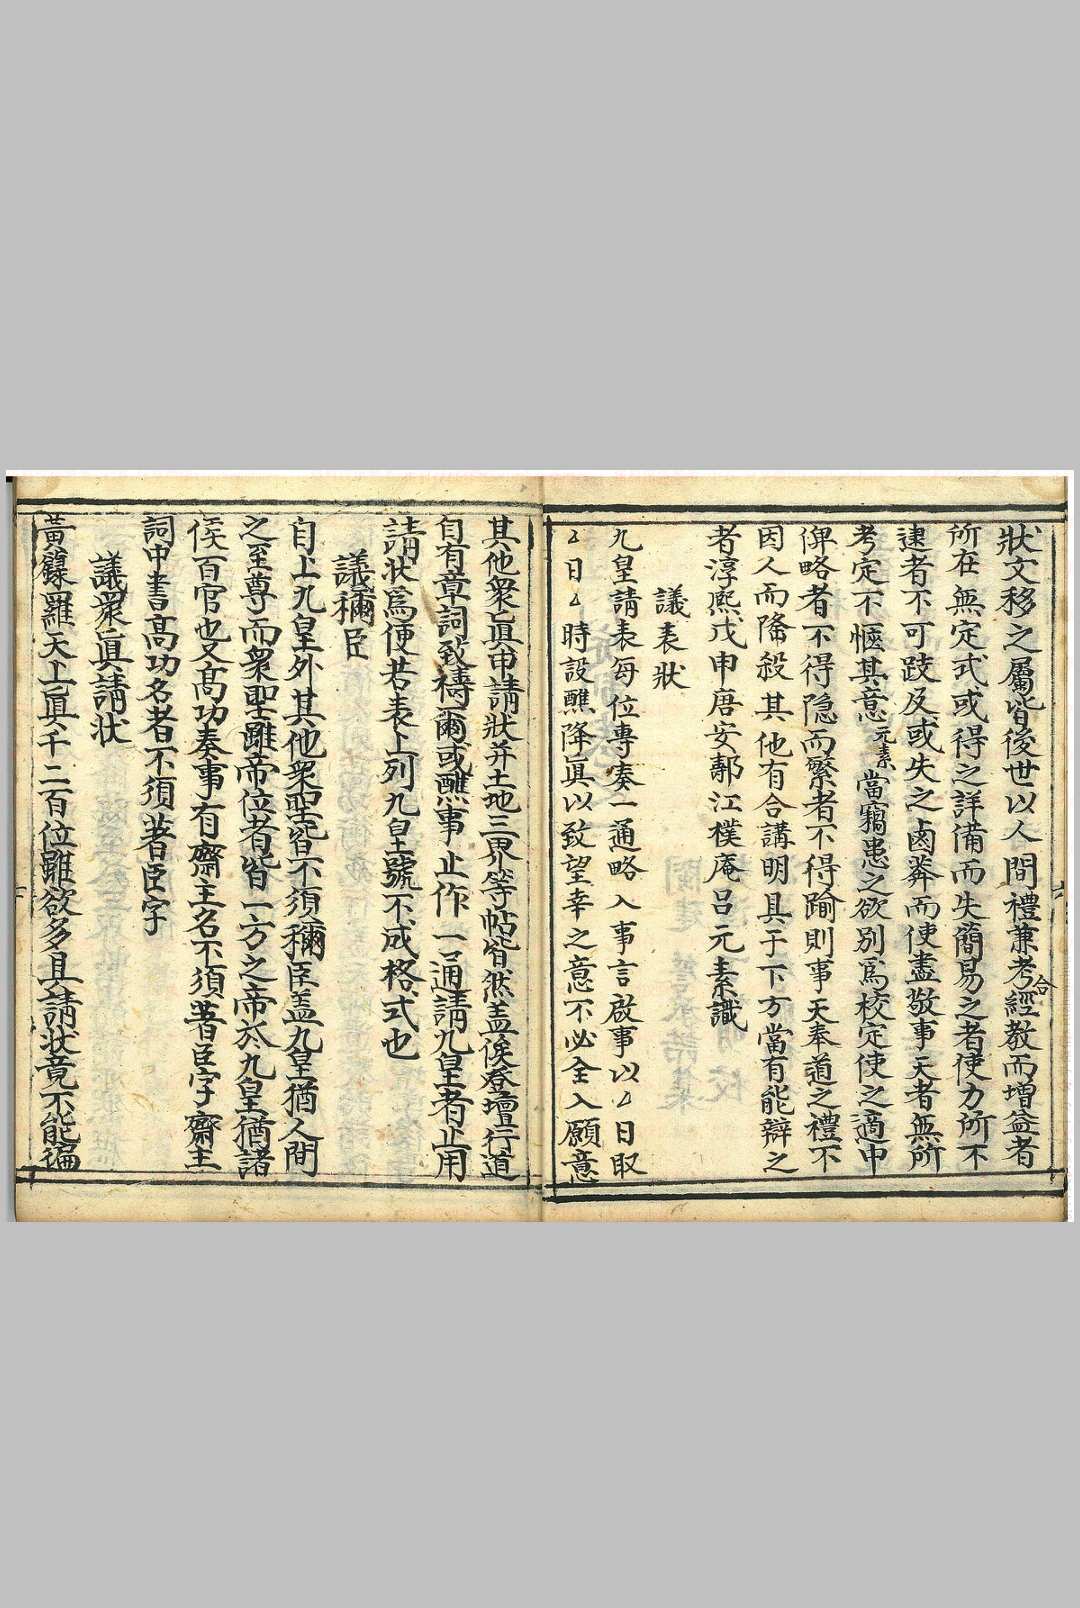 狀文移之屬皆後世以人間禮兼考合經教而增益者
所在無定式或得之詳備而失簡易之者使力所不
逮者不可跂及或失之鹵莽而使盡敬事天者無所
考定不愜其意元素當竊患之欲別爲校定使之適中
俾略者不得隐而繁者不得踰則事天奉道之禮不
因人而隆殺其他有合講明具于下方當有能辯之
者淳熙戊申唐安鄅江樸庵呂元素識
議表狀
九皇請表每位專奏一通略入事言啟事以厶日取
厶日厶時設醮降眞以致望幸之意不必全入願意
其他衆眞申請狀并土地三界等帖皆然盖俟登壇行道
自有章詞致禱爾或醮事止作一通請九皇者止用
請状爲便若表上列九皇號不成格式也
議稱臣
自上九皇外其他衆聖皆不須稱臣盖九皇猶人間
之至尊而衆聖雖帝位者皆一方之帝於九皇猶諸
侯百官也又髙功奏事有齋主名不須著臣字齋主
詞中書高功名者不須著臣字
議衆眞請状
黃籙羅天上眞千二百位雖欲多具請状竟不能徧